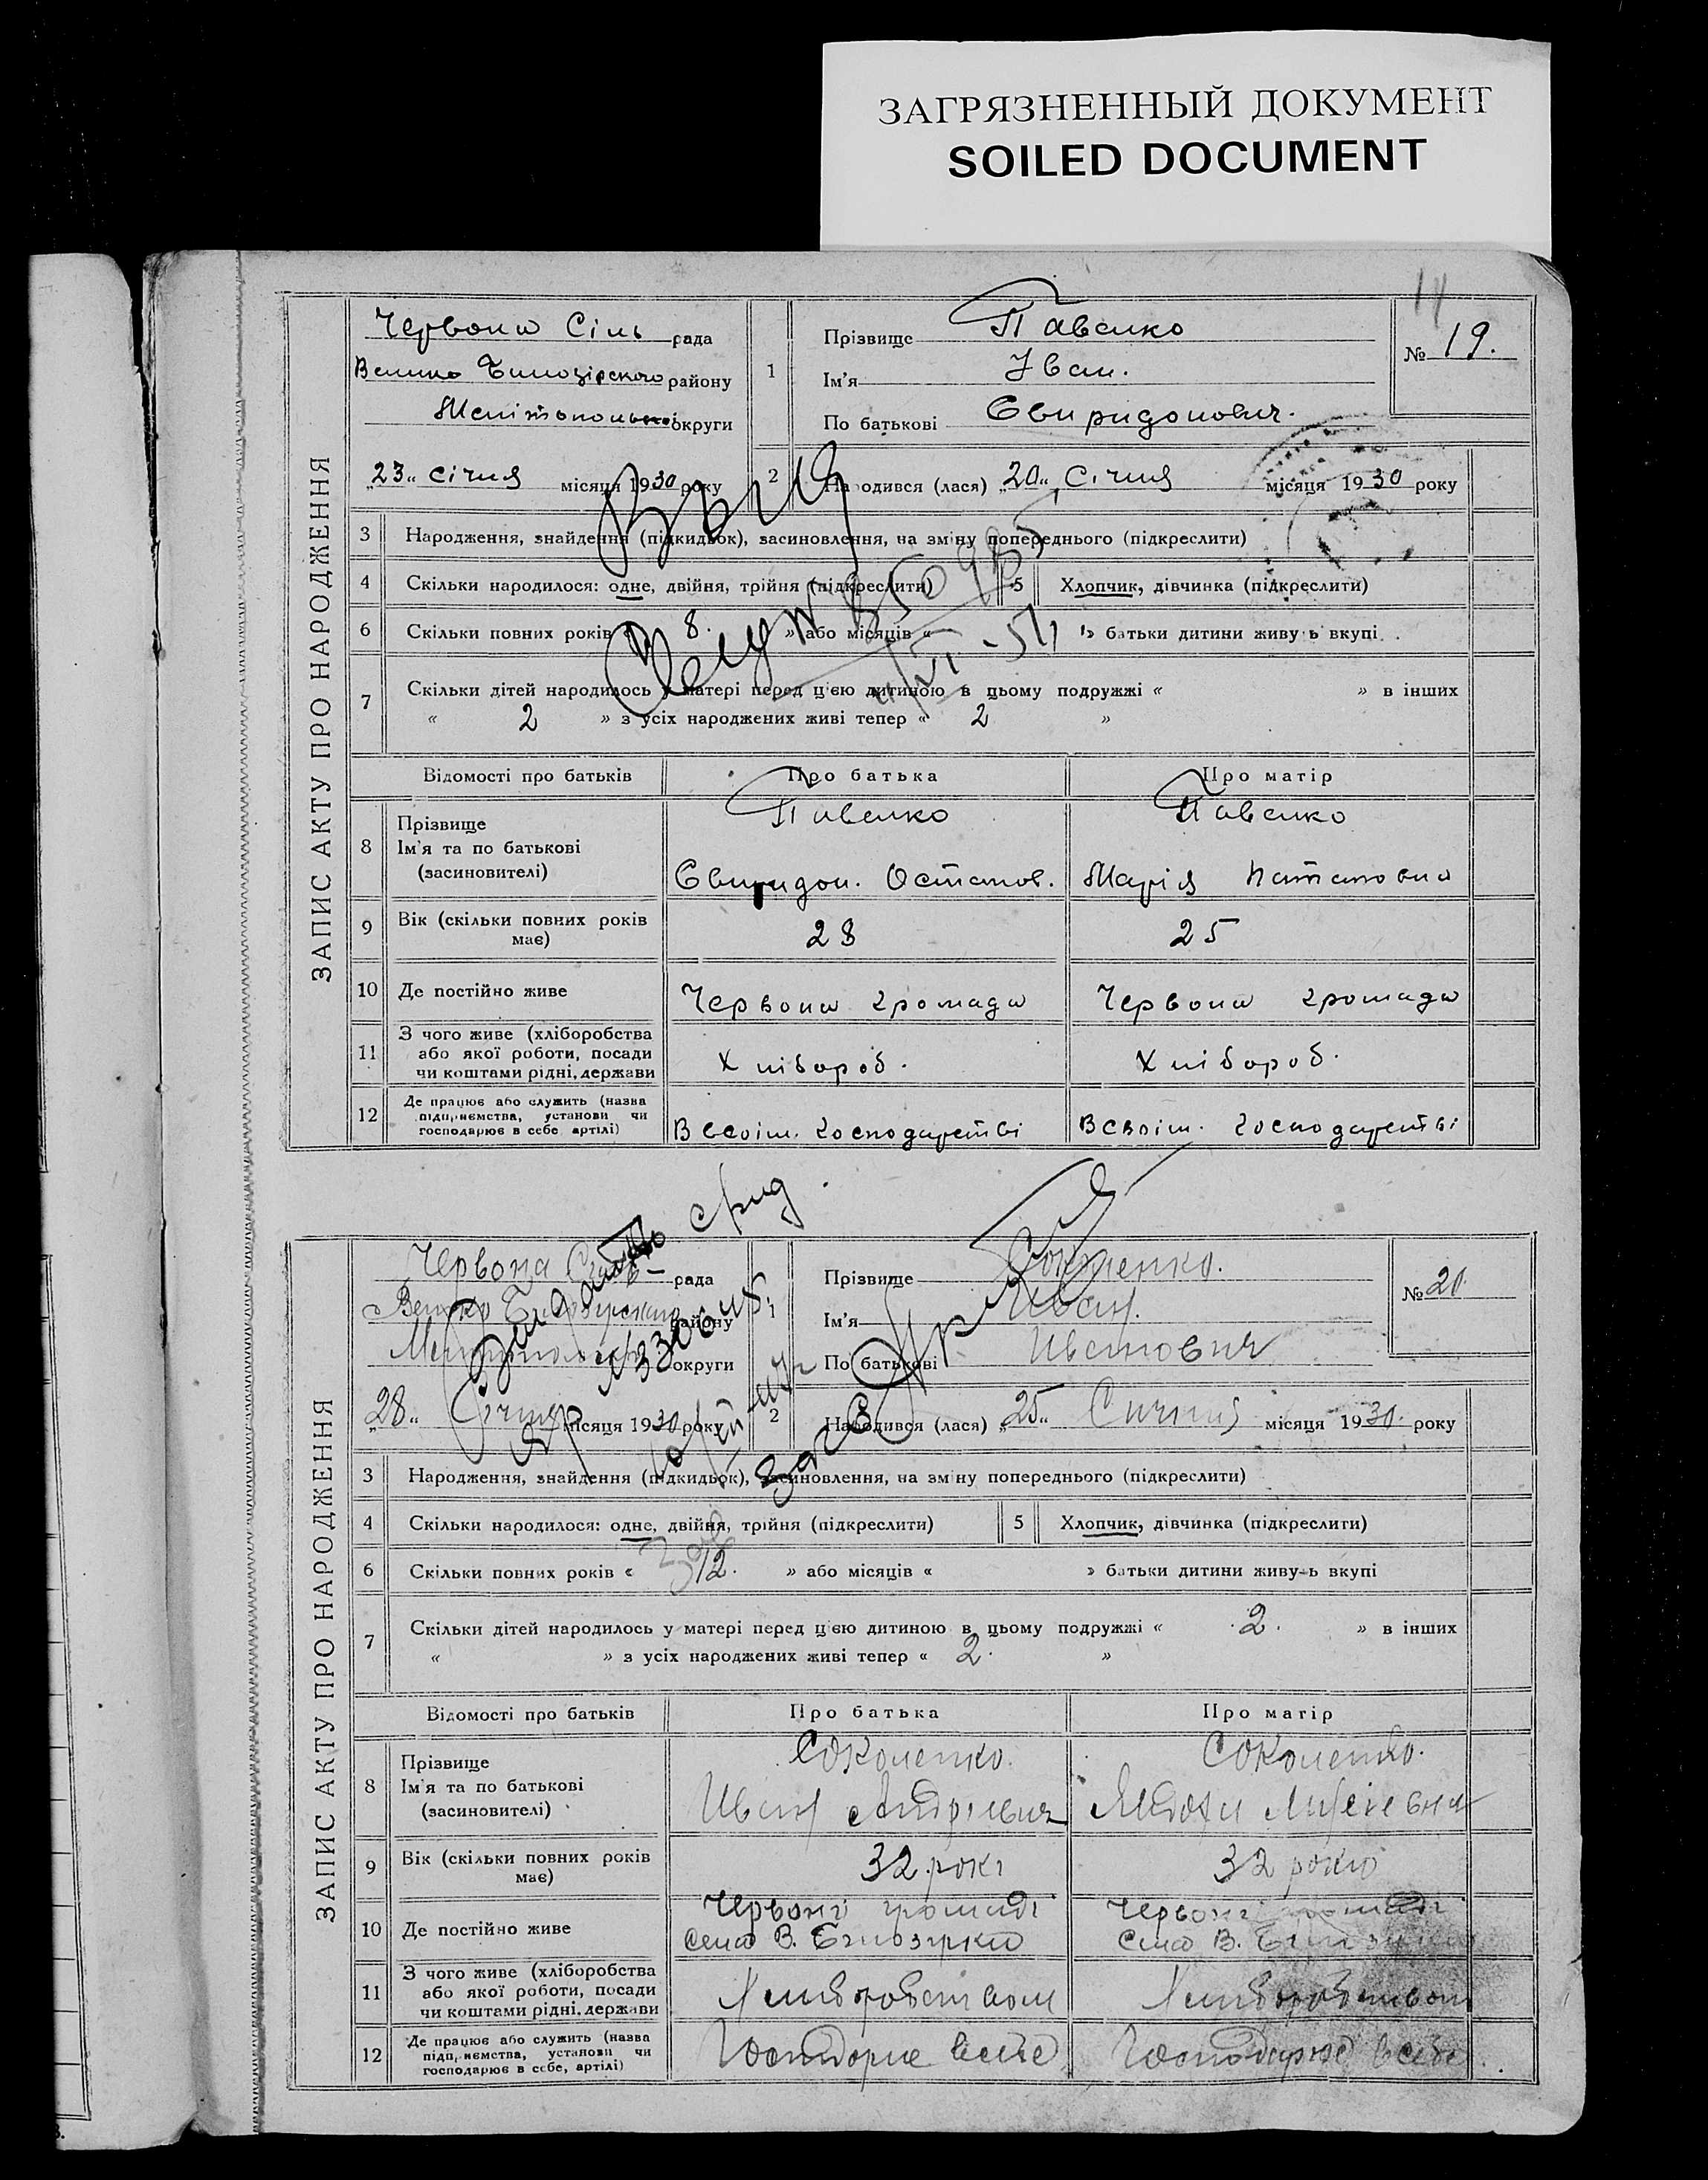 ЗАГРЯЗНЕННЫЙ ДОКУМЕНТ
SOILED DOCUMENT
14
ЗАПИС АКТУ ПРО НАРОДЖЕННЯ
Червона Сіль рада
Велико Білозірского району
Мелітопольської округи
„23“ січня місяця 1930 року
1
Прізвище Павенко
Ім'я Іван.
По батькові Свиридонович.
№ 19.
2 Народився (лася) „20“ Січня місяця 1930 року
3 Народження, знайдення (підкидьок), засиновлення, на зміну попереднього (підкреслити)
4 Скільки народилося: одне, двійня, трійня (підкреслити) 5 Хлопчик, дівчинка (підкреслити)
6 Скільки повних років « 8. » або місяців « » батьки дитини живуть вкупі
7 Скільки дітей народилось у матері перед цією дитиною в цьому подружжі « » в інших
« 2 » з усіх народжених живі тепер « 2 »
Відомості про батьків Про батька Про матір
8 Прізвище
Ім'я та по батькові
(засновителі)
Павенко
Свиридон. Остапов.
Павенко
Марія
9 Вік (скільки повних років
має) 28 25
10 Де постійно живе Червона громада Червона громада
11 З чого живе (хліборобства
або якої роботи, посади
чи коштами рідні, держави
Хлібороб. Хлібороб.
12 Де працює або служить (назва
підприємства, установи чи
господарює в себе, артілі)
В своїм. господарстві В своїм. господарстві
ЗАПИС АКТУ ПРО НАРОДЖЕННЯ
Червона рада
Велико Білозирского району
округи
„28“ Січня місяця 1930 року
1
Прізвище Соколенко.
Ім'я Иван.
По батькові Иванович
№ 20.
2 Народився (лася) „25“ Сичня місяця 1930. року
3 Народження, знайдення (підкидьок), засиновлення, на зміну попереднього (підкреслити)
4 Скільки народилося: одне, двійня, трійня (підкреслити) 5 Хлопчик, дівчинка (підкреслити)
6 Скільки повних років « 12. » або місяців « » батьки дитини живуть вкупі
7 Скільки дітей народилось у матері перед цією дитиною в цьому подружжі « 2. » в інших
« » з усіх народжених живі тепер « 2. »
Відомості про батьків Про батька Про матір
8 Прізвище
Ім'я та по батькові
(засиновителі)
Соколенко.
Иван Андріевич
Соколенко.
9 Вік (скільки повних років
має) 32 рокі 32 років
10 Де постійно живе
Червоні громаді
Села В. Білозирка
Червоні громаді
Села В.
11 З чого живе (хліборобства
або якої роботи, посади
чи коштами рідні, держави
Хлиборобством Хлиборобством
12 Де працює або служить (назва
підприємства, установи чи
господарює в себе, артілі)
Господарює в себе Господарює в себе